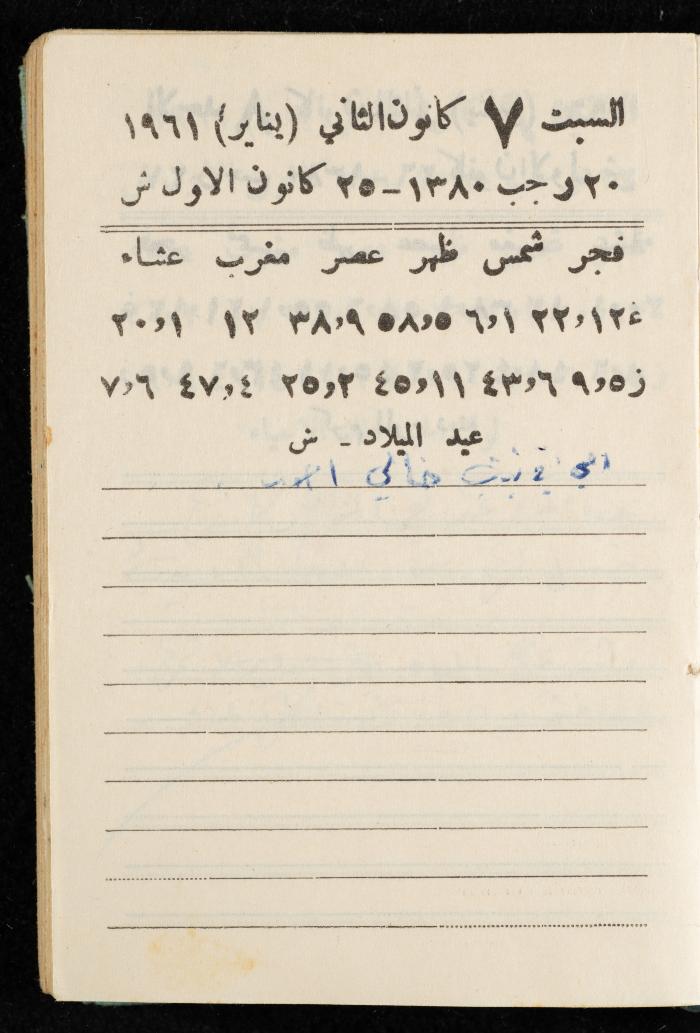 السبت ٧ كانون الثاني (يناير) ١٩٦١
٢٠ رجب ١٣٨٠ - ٢٥ كانون الاول ش
فجر شمس ظهر عصر مغرب عشاء
غ ١٢,٢٢ ١,٦ ٥,٥٨ ٩,٣٨ ١٢ ١,٢٠
ز ٥,٩ ٦,٤٣ ١١,٤٥ ٢,٢٥ ٤,٤٧ ٦,٧
عيد الميلاد - ش
في بيت خالي